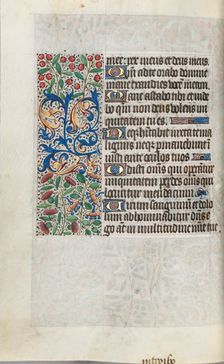 mee: rex meus et deus meus.
Qm ad te orabo domine
mane exaudies vocem meam
Mane astabo tibi et vide
bo qm non deus volens ini
quitatem tu es.
Neq habitabit iuxta te ma
lignus neq permanebunt in
iusti ante oculos tuos
Odisti oms qui operantur
iniquitatem perdes oms qui
loquuntur mendacium
Virum sanguinum et do
losum abominabitur dns
ego aut in multitudine mie tue
introibo